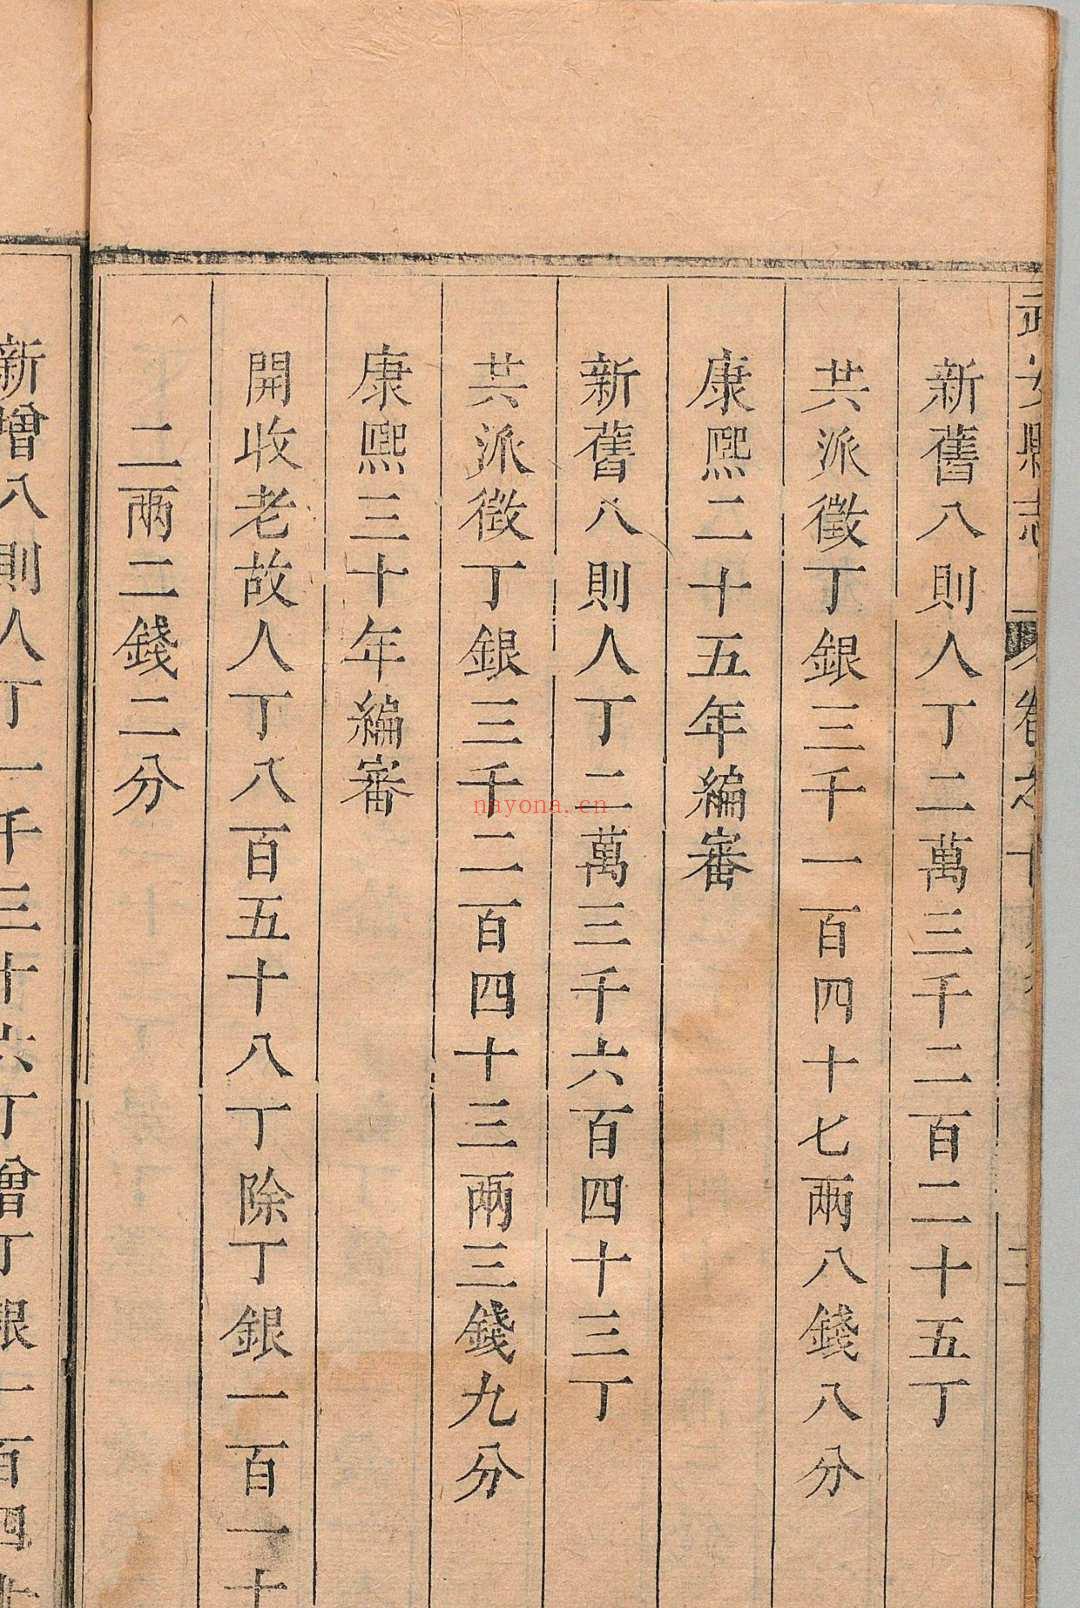 武安縣志
卷之
新舊八則人丁二萬三千二百二十五丁
共派徵丁銀三千一百四十七兩八錢八分
康熙二十五年編審
新舊八則人丁二萬三千六百四十三丁
共派徵丁銀三千二百四十三兩三錢九分
康熙三十年編審
開收老故人丁八百五十八丁除丁銀一百一十
二兩二錢二分
新增八則人丁一千三十六丁增丁銀一百四十
nayona.cn